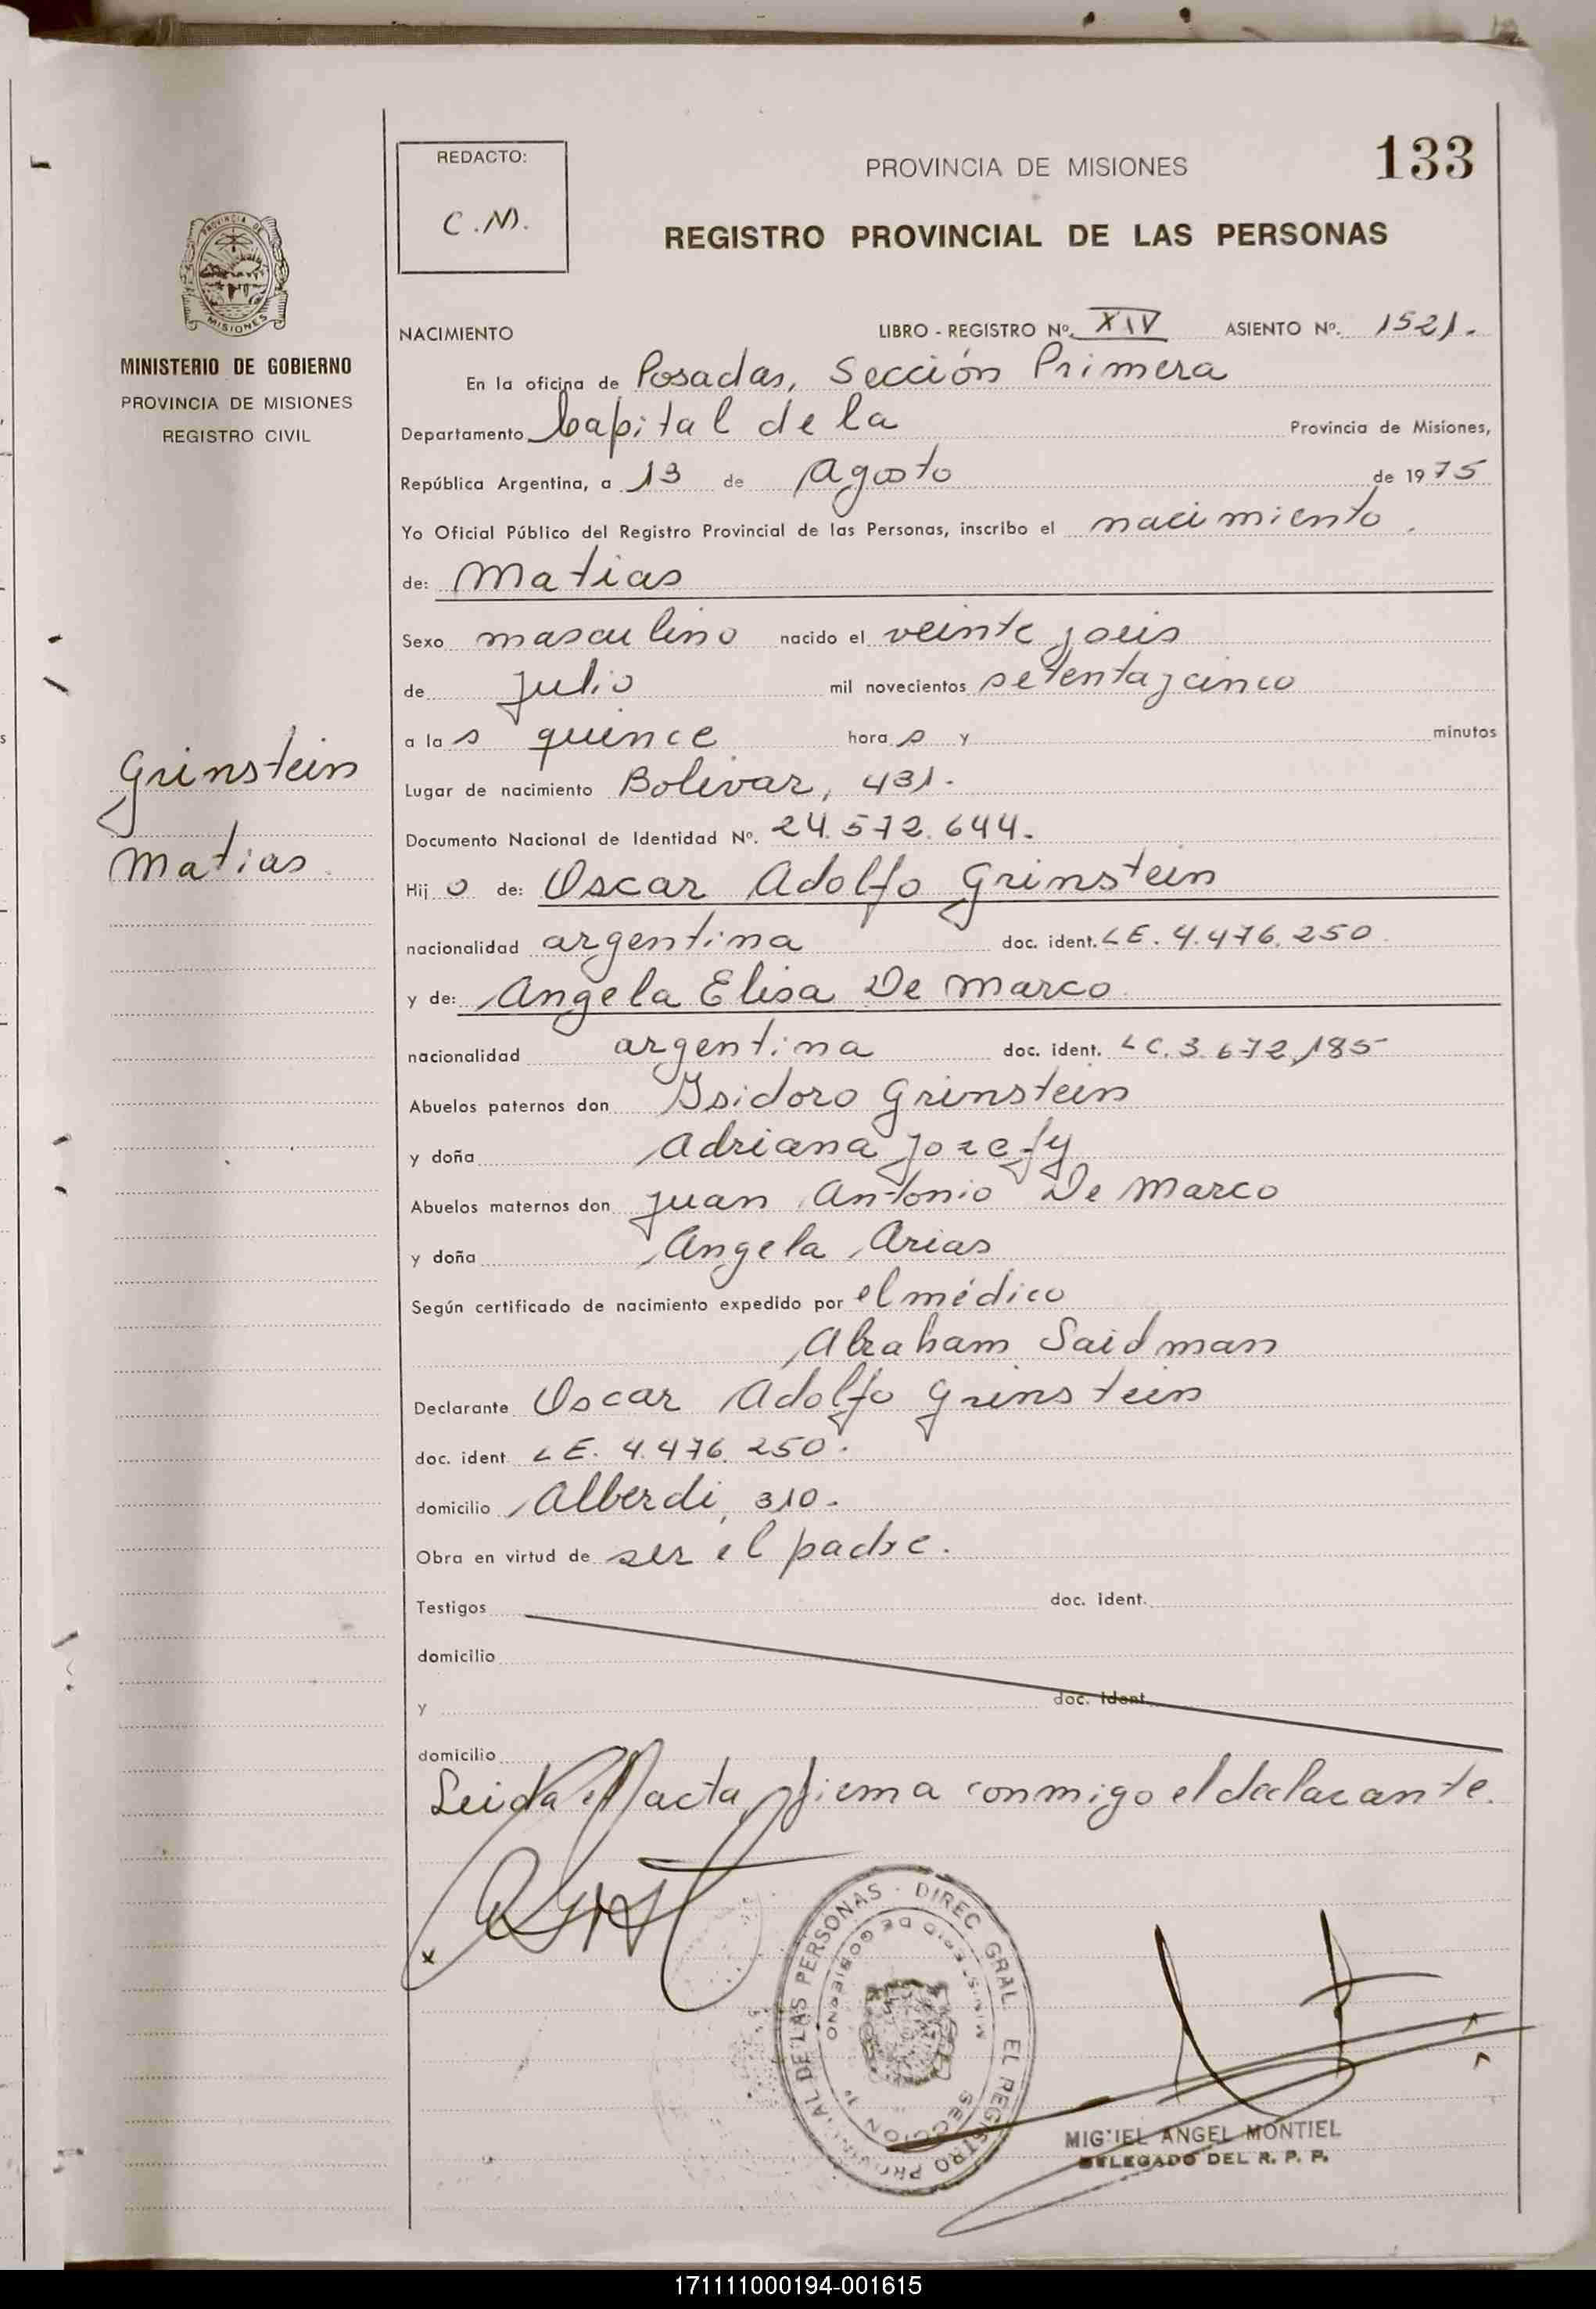 133
REDACTO:
C.M.
PROVINCIA DE MISIONES
REGISTRO PROVINCIAL DE LAS PERSONAS
PROVINCIA DE
MISIONES
MINISTERIO DE GOBIERNO
PROVINCIA DE MISIONES
REGISTRO CIVIL
Grinstein
Matias
NACIMIENTO LIBRO - REGISTRO Nº. XIV ASIENTO Nº. 1521.
En la oficina de Posadas, Sección Primera
Departamento Capital de la Provincia de Misiones,
República Argentina, a 13 de Agosto de 1975
Yo Oficial Público del Registro Provincial de las Personas, inscribo el nacimiento
de: Matias
Sexo masculino nacido el veinte y seis
de Julio mil novecientos setenta y cinco
a la s quince hora s y minutos
Lugar de nacimiento Bolivar, 431.
Documento Nacional de Identidad Nº. 24.572.644.
Hij o de: Oscar Adolfo Grinstein
nacionalidad argentina doc. ident. LE. 4.476.250
y de: Angela Elisa De Marco
nacionalidad argentina doc. ident. LC. 3.672.185
Abuelos paternos don Isidoro Grinstein
y doña Adriana Jozefy
Abuelos maternos don Juan Antonio De Marco
y doña Angela Arias
Según certificado de nacimiento expedido por el médico
Abraham Saidman
Declarante Oscar Adolfo Grinstein
doc. ident LE. 4.476.250.
domicilio Alberdi, 310.
Obra en virtud de ser el padre.
Testigos doc. ident.
domicilio
y doc. ident
domicilio
Leida el acta, firma conmigo el declarante.
DIREC. GRAL. EL REGISTRO PROVINCIAL DE LAS PERSONAS
MINISTERIO DE GOBIERNO
SECCION 1ª
MIGUEL ANGEL MONTIEL
DELEGADO DEL R. P. P.
171111000194-001615